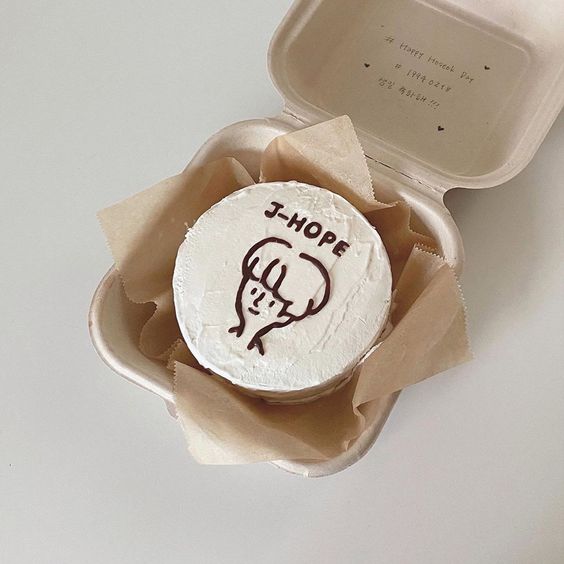 # Happy Hoseok Day
# 19940218
생일 축하해!!!
J-HOPE